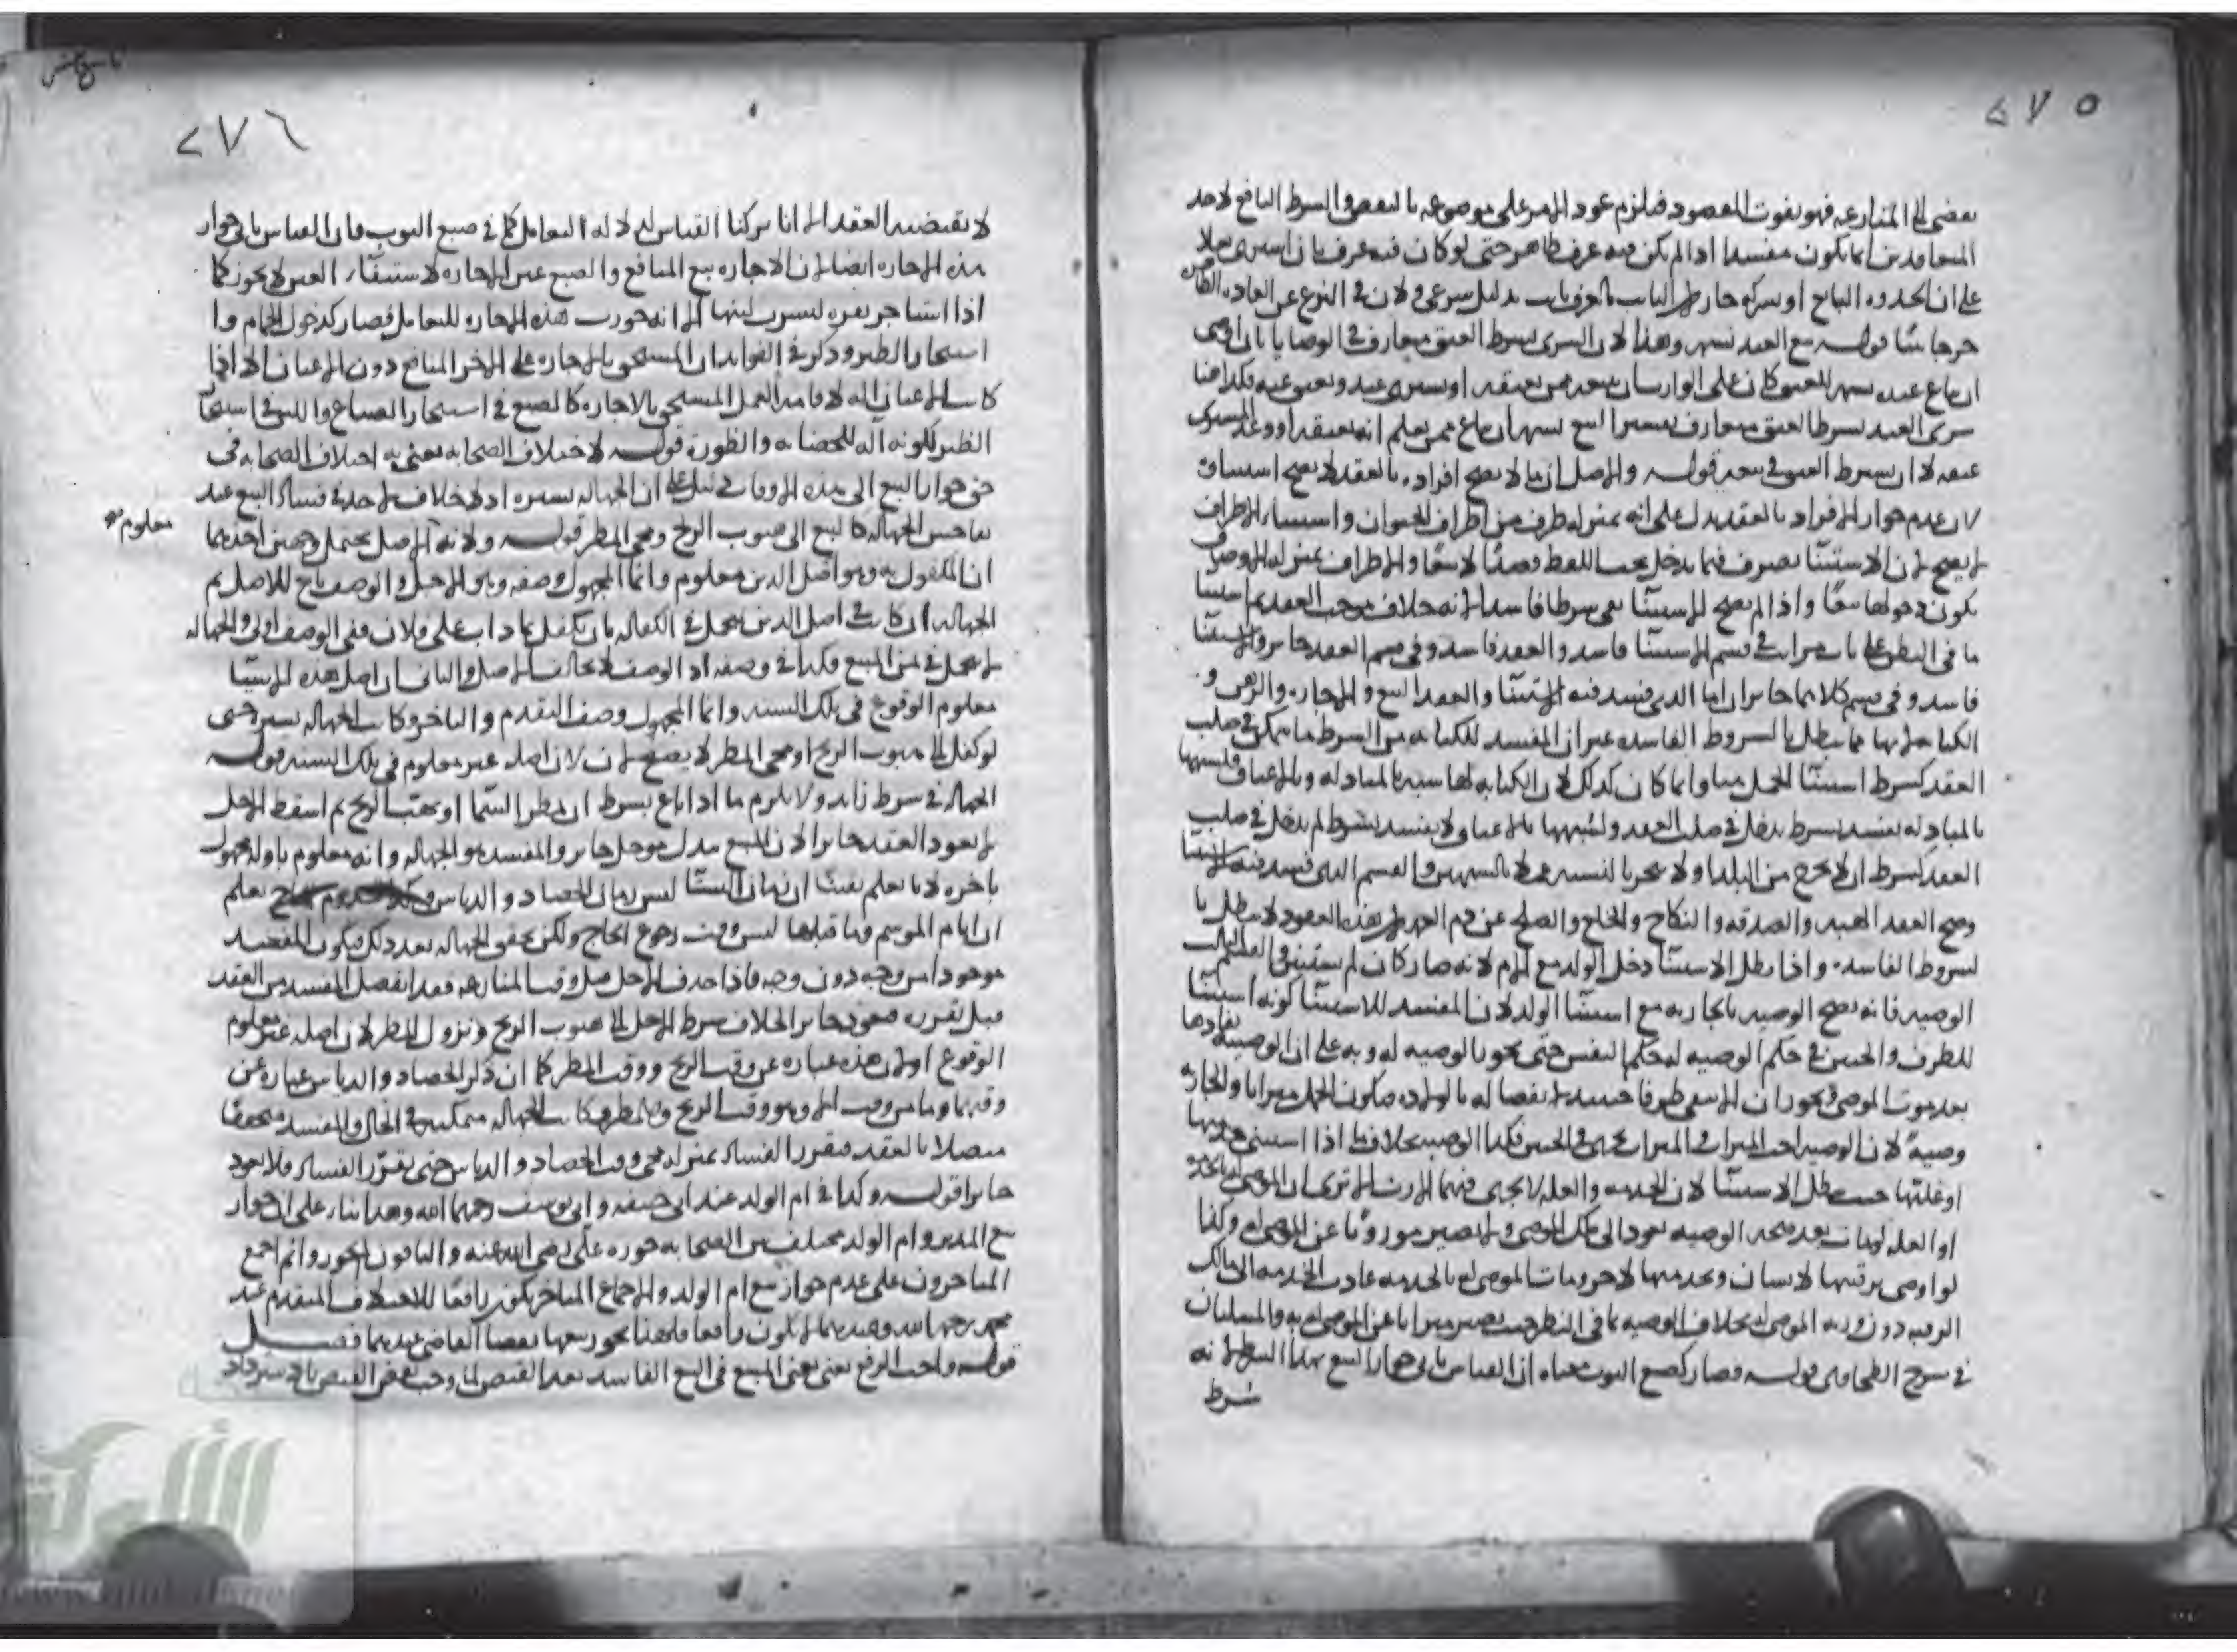 ٢٧٥
يفضى الى المنازعه فهو يفوت المقصود فيلزم عود الامر على موضوعه بالنقض والشرط النافع لاحد
المتعاقدين انما يكون مفسدا اذا لم يكن فيه عرف ظاهر حتى لو كان فيه عرف بان اشترى نعلا
على ان يحذوه البائع او يشركه جاز لان الثابت بالعرف ثابت بدليل شرعى ولان فى النزع عن العاده الظاهره
حرجا بينا قوله بيع العبد نسمه وهذا لان الشرى بشرط العتق متعارف فى الوصايا بان اوصى
ان يباع عبده نسمه للعتق كان على الوارث ان يبيعه ممن يعتقه او يشترى عبد ويعتق عنه فكذا هنا
شرى العبد بشرط العتق متعارف تفسير البيع نسمة ان يباع ممن يعلم انه يعتقه او وعد المشترى
عتقه لا ان يشترط العتق فى بيعه قوله والاصل ان ما لا يصح افراده بالعقد لا يصح استثناؤه
لان عدم جواز الافراد بالعقد يدل على انه بمنزله طرف من اطراف الحيوان واستثناء الاطراف
لا يصح لان الاستثنا تصرف فيما يدخل تحت اللفظ قصدا لا تبعا والاطراف بمنزله الاوصاف
يكون دخولها تبعا واذا لم يصح الاستثنا بقى شرطا فاسدا لانه خلاف موجب العقد ثم استثنا
ما فى البطن على ثلث مراتب فى قسم الاستثنا فاسد والعقد فاسد وفى قسم العقد جائز والاستثنا
فاسد وفى قسم كلاهما جائزان اما الذى فسد فيه الاستثنا والعقد البيع والاجاره والرهن و
الكتابه لانها مما يبطل بالشروط الفاسده غير ان المفسد للكتابه من الشروط ما تمكن فى صلب
العقد كشرط استثنا الحمل هنا وانما كان كذلك لان الكتابه لها شبه بالمبادله وبالاعتاق فلشبهها
بالمبادله يفسد بشرط يدخل فى صلب العقد ولشبهها بالاعتاق لا يفسد بشرط لم يدخل فى صلب
العقد كشرط ان لا يخرج من البلد او لا يتجر بالنسيه عملا بالشبهين والقسم الذى فسد فيه الاستثنا
وصح العقد الهبه والصدقه والنكاح والخلع والصلح عن دم العمد لان هذه العقود لا تبطل با
لشروط الفاسده واذا بطل الاستثنا دخل الولد مع الام لانه صار كان لم يستثن والقسم الثالث
الوصيه فانه تصح الوصيه بالجاريه مع استثنا الولد لان المفسد للاستثنا كونه استثنا
للطرف والجنين فى حكم الوصيه له حكم النفس حتى تجوز الوصيه له وبه على ان الوصيه نفادها
بعد موت الموصى
وصية لان الوصيه اخت الميراث والميراث يجرى فى الجنين فكذا الوصيه بخلاف ما اذا استثنى خدمتها
او غلتها حيث يبطل الاستثنا لان الخدمه والغله لا يجرى فيهما الارث الا ترى ان الموصى له بالخدمه
او الغله لو مات بعد صحه الوصيه تعود الى ملك الموصى ولا تصير موروثا عن الموصى له وكذا
لو اوصى برقبتها لانسان وبخدمتها لآخر ومات الموصى له بالخدمه عادت الخدمه الى مالك
الرقبه دون ورثه الموصى له بخلاف الوصيه بما فى البطن حيث يصير ميراثا عن الموصى له به والمسئلتان
فى شرح الطحاوى قوله فصار كصبغ الثوب معناه ان القياس يابى جواز البيع بهذا الشرط لانه
شرط
٢٧٦
لا يقتضيه العقد الا انا تركنا القياس لدلاله التعامل كما فى صبغ الثوب فان القياس يابى جواز
هذه الاجاره ايضا لان الاجاره بيع المنافع والصبغ عين والاجاره لاستيفاء العين لا يجوز كما
اذا استاجر بقره ليشرب لبنها الا انه جوزت هذه الاجاره للتعامل فصار كدخول الحمام وا
استيجار الظئر وذكر فى الفوائد ان المستحق بالاجاره على الاخر المنافع دون الاعيان الا اذا
كانت الاعيان اله لاقامه العمل المستحق بالاجاره كالصبغ فى استيجار الصباغ واللبن فى استيجار
الظئر لكونه آله للحضانه والظؤرة قوله لاختلاف الصحابه يعنى به اختلاف الصحابه فى
حق جواز البيع الى هذه الاوقات دليل على ان الجهاله يسيره اذ لا خلاف لاحد فى فساد البيع عند
تفاحش الجهاله كالبيع الى هبوب الريح ومجى المطر قوله ولانه الاصل يحتمل وجهين احدهما
معلوم
ان المكفول به وهو اصل الدين معلوم وانما المجهول وصفه وهو الاجل والوصف تابع للاصل ثم
الجهاله ان كانت فى اصل الدين تتحمل فى الكفاله بان تكفل بما ذاب على فلان ففى الوصف اولى والجهاله
لا تتحمل فى ثمن المبيع فكذا فى وصفه اذ الوصف لا يخالف الاصل والثانى ان اصل هذه الاشيا
معلوم الوقوع فى تلك السنه وانما المجهول وصف التقدم والتاخر وكانت الجهاله يسيره حتى
لو كفل الى هبوب الريح او مجى المطر لا يصح لان اصله غير معلوم فى تلك السنه قوله
الجهاله فى شرط زائد ولا يلزم ما اذا باع بشرط ان تمطر السما او تهب الريح ثم اسقط الاجل
لا يعود العقد جائزا لان المبيع بدل موجل جائز والمفسد هو الجهاله وانه معلوم باوله مجهول
باخره لانا نعلم يقينا ان زمان الشتا ليس زمان الحصاد والدياس نعلم
ان ايام الموسم وما قبلها ليس وقت رجوع الحاج ولكن تحقق الجهاله بعد ذلك فيكون المفسد
موجودا من وجه دون وجه فاذا حذف الاجل قبل وقت المنازعه فقد انفصل المفسد من العقد
قبل تقرره فيعود جائزا بخلاف شرط الاجل الى هبوب الريح ونزول المطر لان اصله غير معلوم
الوقوع او لان هذه عباره عن وقت الريح ووقت المطر كما ان ذكر الحصاد والدياس عباره عن
وقتهما وما من وقت الا وهو وقت الريح والمطر فكانت الجهاله متمكنه فى الحال والمفسد متحققا
متصلا بالعقد فيقرر الفساد بمنزله مجى وقت الحصاد والدياس حتى يقرر الفساد فلا يعود
جائزا قوله وكذا فى ام الولد عند ابى حنيفه وابى يوسف رحمهما الله وهذا بناء على ان جواز
بيع المدبر وام الولد مختلف بين الصحابه جوزه على رضى الله عنه والباقون لم يجوزوا ثم اجمع
المتاخرون على عدم جواز بيع ام الولد والاجماع المتاخر يكون رافعا للاختلاف المتقدم عند
محمد رحمه الله وعندهما لا يكون رافعا فلهذا يجوز بيعها بقضا القاضى عندهما فصل
قوله واجب الرفع يعنى المبيع فى البيع الفاسد بعد القبض